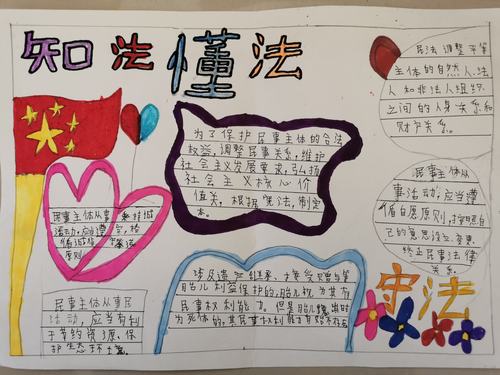 知法懂法
民法调整平等
主体的自然人、法
人和非法人组织
之间的人身关系和
财产关系。
为了保护民事主体的合法
权益,调整民事关系,维护
社会主义发展要求,弘扬
社会主义核心价
值关,根据宪法,制定
本。
民事主体从事
活动,应当遵
循诚信
原则
民事主体从
事活动,应当遵
循自愿原则,按照自
己的意思设立、变更、
终止民事法律
关系
民事主体从事民
活动,应当有利
于节约资源、保
护生态环境。
涉及遗产继承、接受赠与等
胎儿利益保护的,胎儿视为具有
民事权利能力。但是胎儿娩出时
为死体的,其民事权利能力
守法